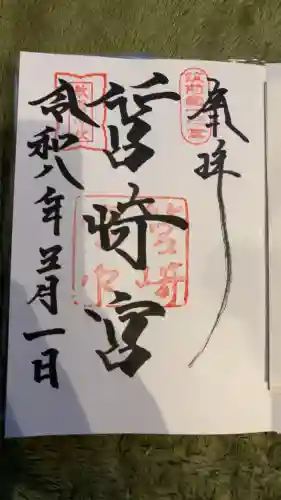 奉拝
筑前國一之宮
筥崎宮
筥崎
宮印
令和八年三月一日